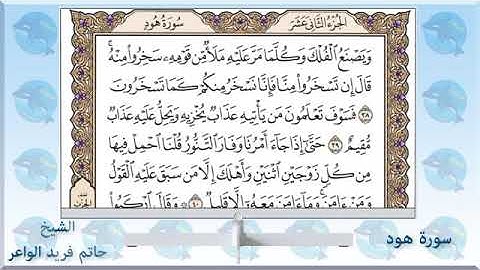 الجزء الثاني عشر
سورة هود
وَيَصْنَعُ ٱلْفُلْكَ وَكُلَّمَا مَرَّ عَلَيْهِ مَلَأٌ مِّن قَوْمِهِۦ سَخِرُوا۟ مِنْهُ ۚ
قَالَ إِن تَسْخَرُوا۟ مِنَّا فَإِنَّا نَسْخَرُ مِنكُمْ كَمَا تَسْخَرُونَ
٣٨ فَسَوْفَ تَعْلَمُونَ مَن يَأْتِيهِ عَذَابٌ يُخْزِيهِ وَيَحِلُّ عَلَيْهِ عَذَابٌ
مُّقِيمٌ ٣٩ حَتَّىٰٓ إِذَا جَآءَ أَمْرُنَا وَفَارَ ٱلتَّنُّورُ قُلْنَا ٱحْمِلْ فِيهَا
مِن كُلٍّ زَوْجَيْنِ ٱثْنَيْنِ وَأَهْلَكَ إِلَّا مَن سَبَقَ عَلَيْهِ ٱلْقَوْلُ
وَمَنْ ءَامَنَ ۚ وَمَآ ءَامَنَ مَعَهُۥٓ إِلَّا قَلِيلٌ ٤٠ ۞ وَقَالَ ٱرْكَبُوا۟
سورة هود
الشيخ
حاتم فريد الواعر